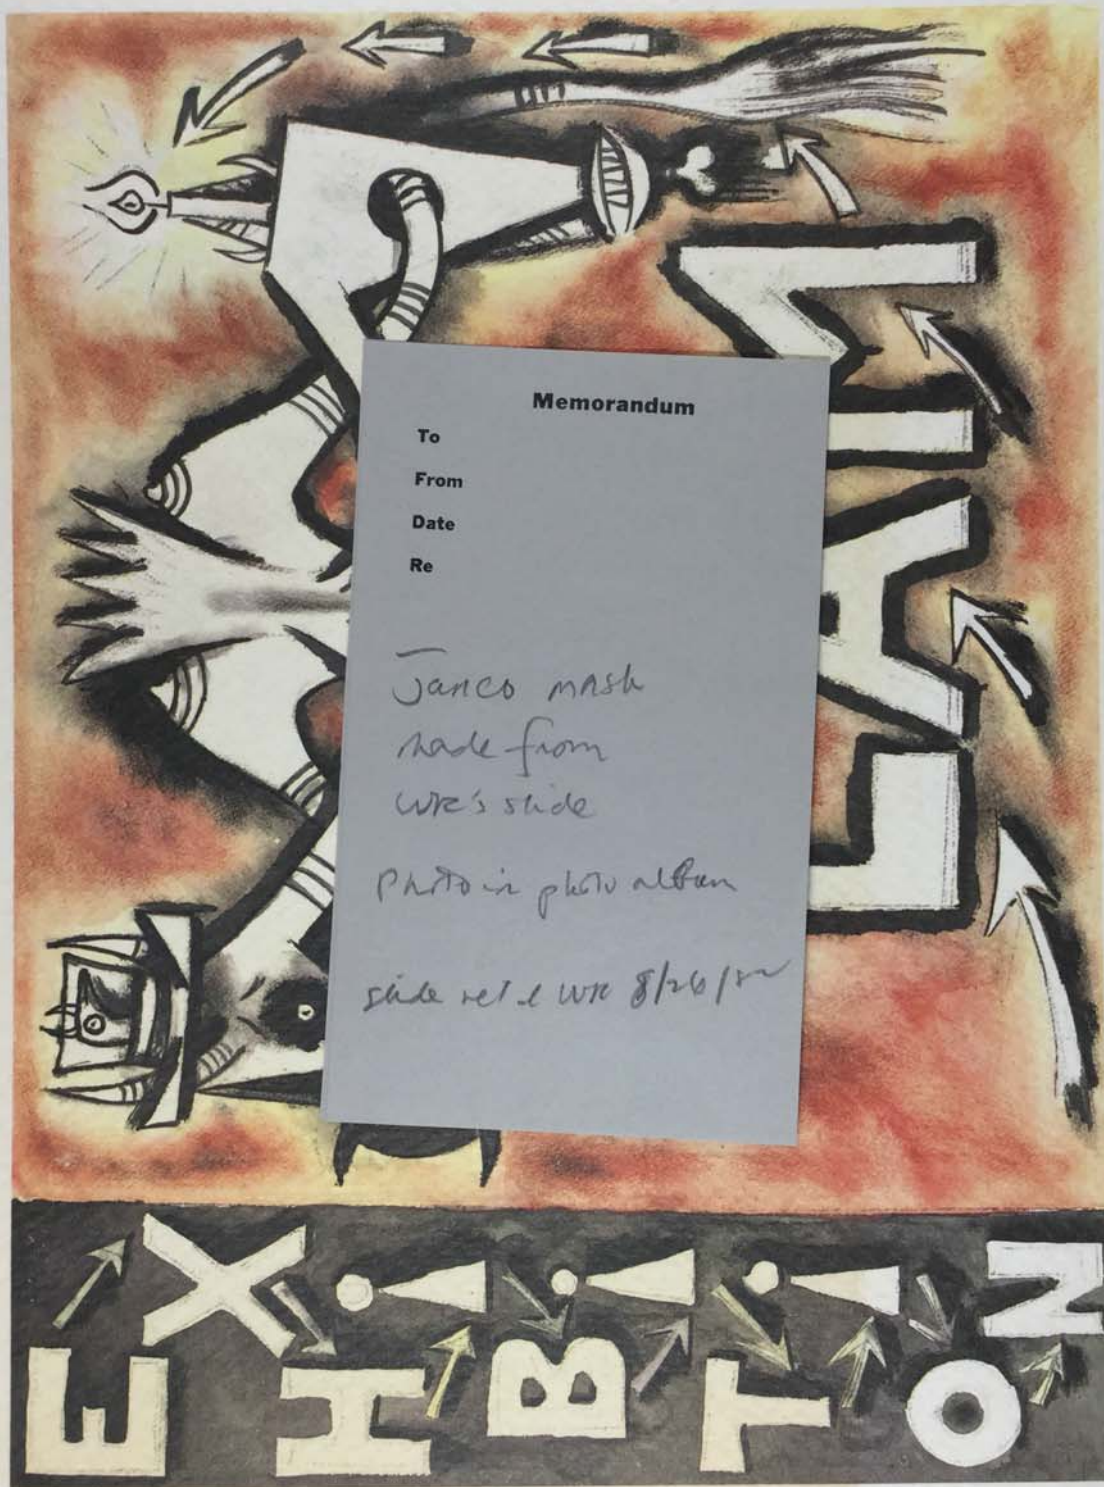 Memorandum
To
From
Date
Re
Janco mask
made from
WR's slide
Photo in photo album
slide ret'd WR 8/26/82
LAM
EXHIBITION